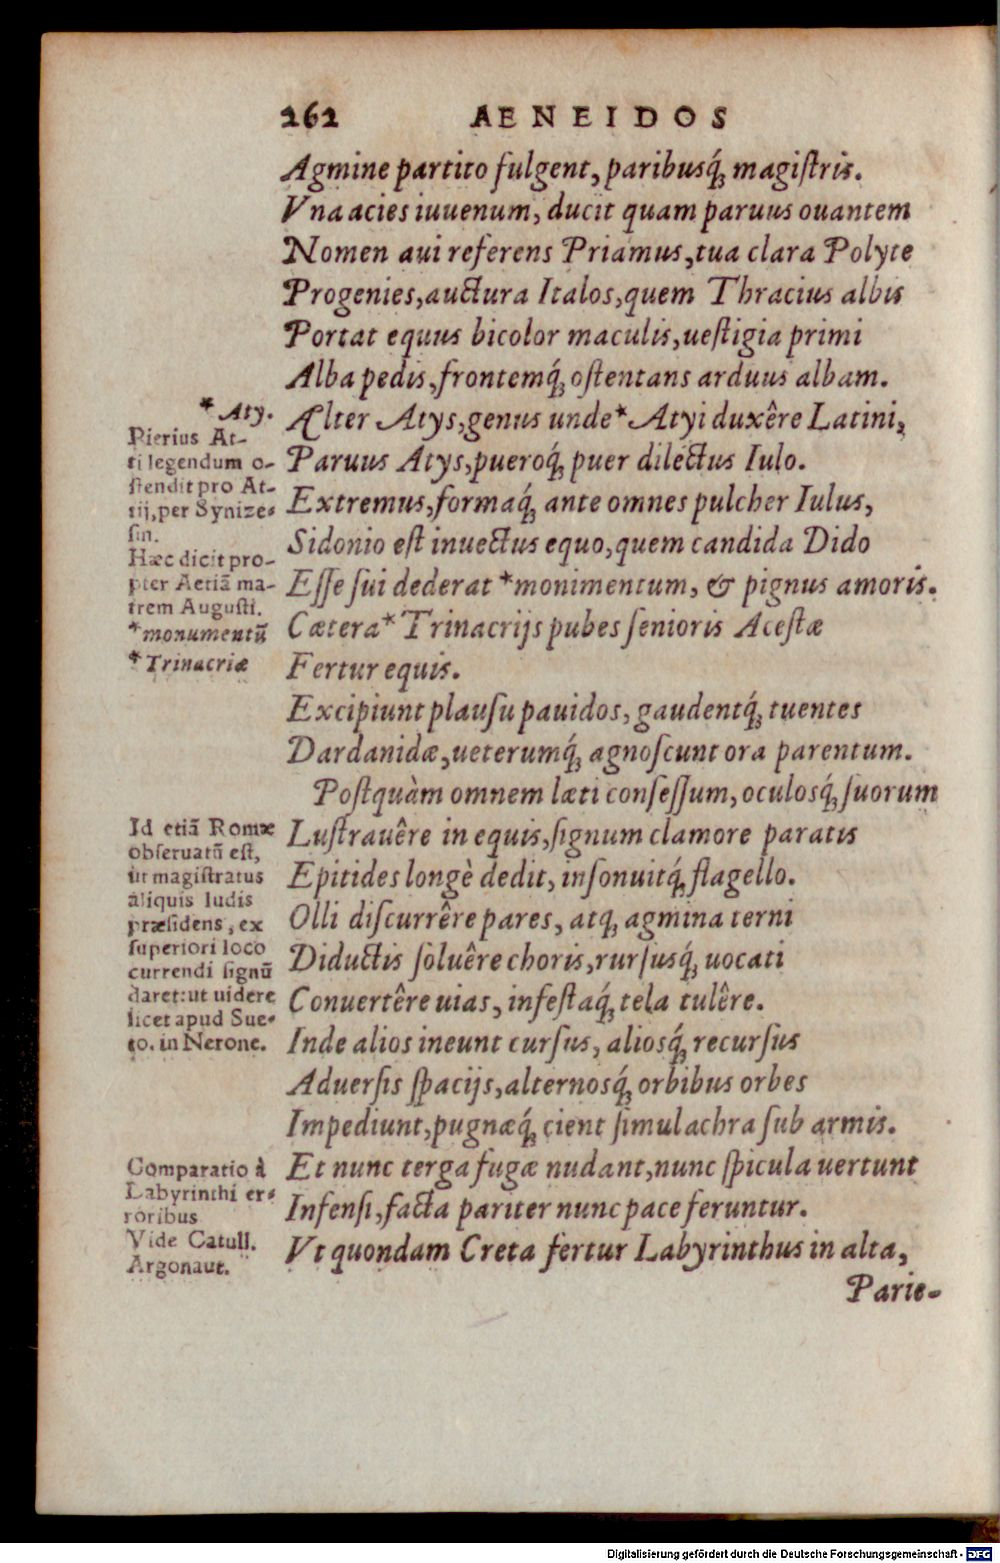 262 AENEIDOS
Agmine partito fulgent, paribusq́; magiſtris.
Vna acies iuuenum, ducit quam paruus ouantem
Nomen aui referens Priamus, tua clara Polyte
Progenies, auctura Italos, quem Thracius albis
Portat equus bicolor maculis, ueſtigia primi
Alba pedis, frontemq́; oſtentans arduus albam.
* Aty.
Pierius At-
ti legendum o-
ſtendit pro At-
tij, per Synize-
ſin.
Hæc dicit pro-
pter Aetiā ma-
trem Auguſti.
* monumentū
* Trinacriæ
Ælter Atys, genus unde * Atyi duxêre Latini,
Paruus Atys, pueroq́; puer dilectus Iulo.
Extremus, formaq́; ante omnes pulcher Iulus,
Sidonio eſt inuectus equo, quem candida Dido
Eſſe ſui dederat * monimentum, & pignus amoris.
Cætera * Trinacrijs pubes ſenioris Aceſtæ
Fertur equis.
Excipiunt plauſu pauidos, gaudentq́; tuentes
Dardanidæ, ueterumq́; agnoſcunt ora parentum.
Poſtquàm omnem læti conſeſſum, oculosq́; ſuorum
Id etiā Romæ
obſeruatū eſt,
ut magiſtratus
aliquis ludis
præſidens, ex
ſuperiori loco
currendi ſignū
daret: ut uidere
licet apud Sue-
to. in Nerone.
Luſtrauêre in equis, ſignum clamore paratis
Epitides longè dedit, inſonuitq́; flagello.
Olli diſcurrêre pares, atq; agmina terni
Diductis ſoluêre choris, rurſusq́; uocati
Conuertêre uias, infeſtaq́; tela tulêre.
Inde alios ineunt curſus, aliosq́; recurſus
Aduerſis ſpacijs, alternosq́; orbibus orbes
Impediunt, pugnæq́; cient ſimulachra ſub armis.
Comparatio à
Labyrinthi er-
roribus
Vide Catull.
Argonaut.
Et nunc terga fugæ nudant, nunc ſpicula uertunt
Infenſi, facta pariter nunc pace feruntur.
Vt quondam Creta fertur Labyrinthus in alta,
Parie-
Digitalisierung gefördert durch die Deutsche Forschungsgemeinschaft - DFG